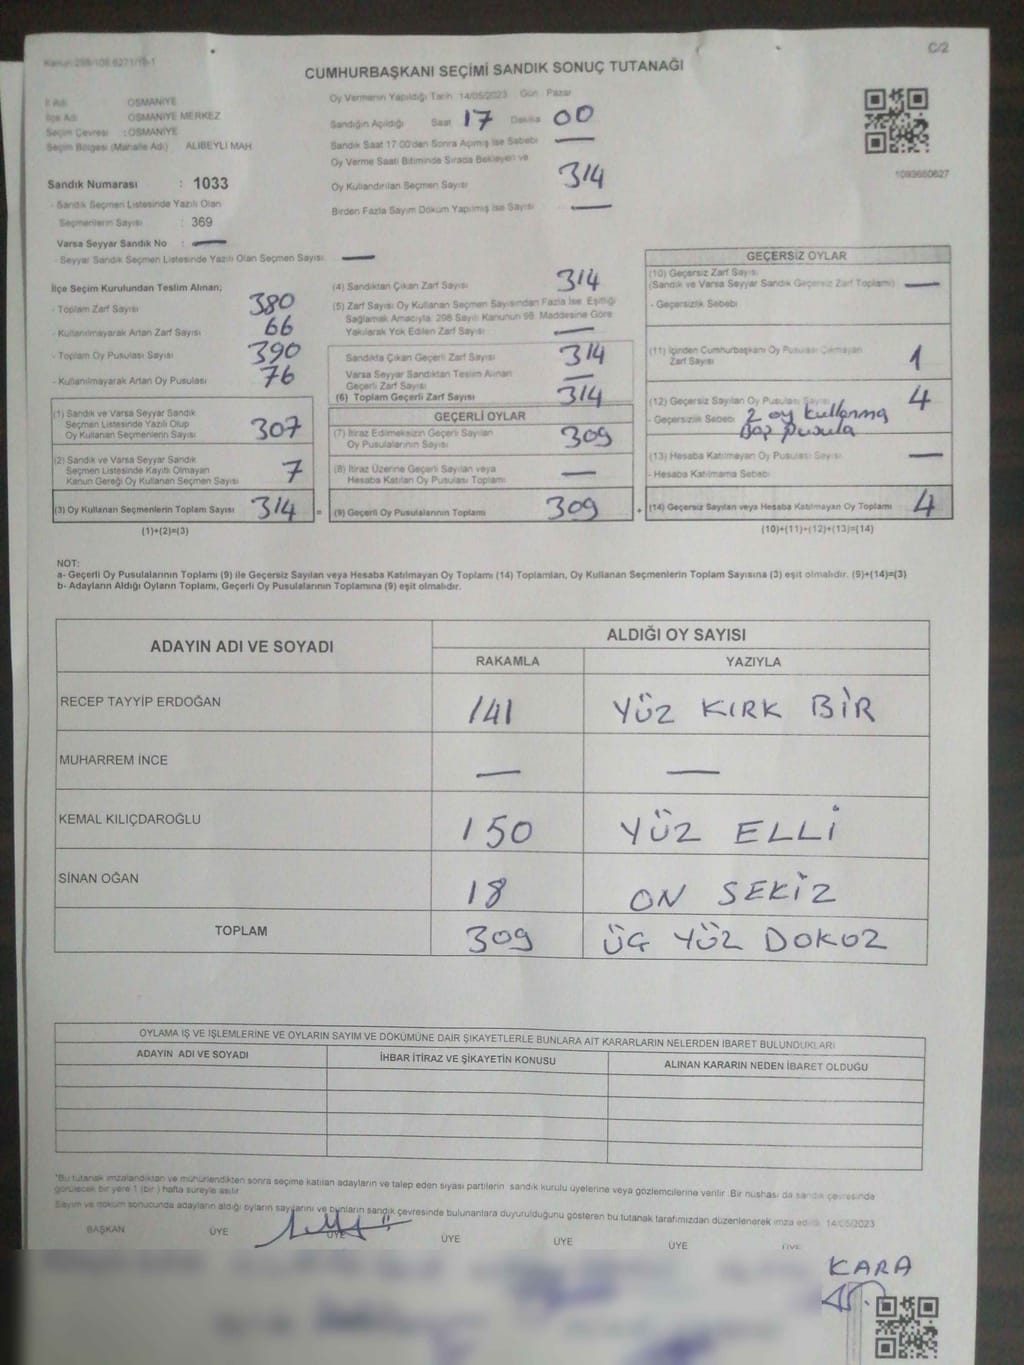 C/2
Kanun 298/108 6271/19-1
CUMHURBAŞKANI SEÇİMİ SANDIK SONUÇ TUTANAĞI
İl Adı OSMANİYE
İlçe Adı OSMANİYE MERKEZ
Seçim Çevresi : OSMANİYE
Seçim Bölgesi (Mahalle Adı) ALİBEYLİ MAH
Sandık Numarası : 1033
- Sandık Seçmen Listesinde Yazılı Olan
Seçmenlerin Sayısı : 369
Varsa Seyyar Sandık No : —
- Seyyar Sandık Seçmen Listesinde Yazılı Olan Seçmen Sayısı —
Oy Vermenin Yapıldığı Tarih 14/05/2023 Gün Pazar
Sandığın Açıldığı Saat 17 Dakika 00
Sandık Saat 17 00'den Sonra Açılmış İse Sebebi —
Oy Verme Saati Bitiminde Sırada Bekleyen ve
Oy Kullandırılan Seçmen Sayısı 314
Birden Fazla Sayım Döküm Yapılmış İse Sayısı —
1093660627
İlçe Seçim Kurulundan Teslim Alınan;
- Toplam Zarf Sayısı 380
- Kullanılmayarak Artan Zarf Sayısı 66
- Toplam Oy Pusulası Sayısı 390
- Kullanılmayarak Artan Oy Pusulası 76
(1) Sandık ve Varsa Seyyar Sandık
Seçmen Listesinde Yazılı Olup
Oy Kullanan Seçmenlerin Sayısı 307
(2) Sandık ve Varsa Seyyar Sandık
Seçmen Listesinde Kayıtlı Olmayan
Kanun Gereği Oy Kullanan Seçmen Sayısı 7
(3) Oy Kullanan Seçmenlerin Toplam Sayısı 314 =
(1)+(2)=(3)
(4) Sandıktan Çıkan Zarf Sayısı 314
(5) Zarf Sayısı Oy Kullanan Seçmen Sayısından Fazla İse, Eşitliği
Sağlamak Amacıyla; 298 Sayılı Kanunun 98. Maddesine Göre
Yakılarak Yok Edilen Zarf Sayısı —
Sandıkta Çıkan Geçerli Zarf Sayısı 314
Varsa Seyyar Sandıktan Teslim Alınan
Geçerli Zarf Sayısı —
(6) Toplam Geçerli Zarf Sayısı 314
GEÇERLİ OYLAR
(7) İtiraz Edilmeksizin Geçerli Sayılan
Oy Pusulalarının Sayısı 309
(8) İtiraz Üzerine Geçerli Sayılan veya
Hesaba Katılan Oy Pusulası Toplamı —
(9) Geçerli Oy Pusulalarının Toplamı 309 +
GEÇERSİZ OYLAR
(10) Geçersiz Zarf Sayısı
(Sandık ve Varsa Seyyar Sandık Geçersiz Zarf Toplamı) —
- Geçersizlik Sebebi
(11) İçinden Cumhurbaşkanı Oy Pusulası Çıkmayan
Zarf Sayısı 1
(12) Geçersiz Sayılan Oy Pusulası Sayısı 4
- Geçersizlik Sebebi 2 oy kullanma
Boş pusula
(13) Hesaba Katılmayan Oy Pusulası Sayısı —
- Hesaba Katılmama Sebebi
(14) Geçersiz Sayılan veya Hesaba Katılmayan Oy Toplamı 4
(10)+(11)+(12)+(13)=(14)
NOT:
a- Geçerli Oy Pusulalarının Toplamı (9) ile Geçersiz Sayılan veya Hesaba Katılmayan Oy Toplamı (14) Toplamları, Oy Kullanan Seçmenlerin Toplam Sayısına (3) eşit olmalıdır. (9)+(14)=(3)
b- Adayların Aldığı Oyların Toplamı, Geçerli Oy Pusulalarının Toplamına (9) eşit olmalıdır.
ADAYIN ADI VE SOYADI ALDIĞI OY SAYISI
RAKAMLA YAZIYLA
RECEP TAYYİP ERDOĞAN 141 YÜZ KIRK BİR
MUHARREM İNCE — —
KEMAL KILIÇDAROĞLU 150 YÜZ ELLİ
SİNAN OĞAN 18 ON SEKİZ
TOPLAM 309 ÜÇ YÜZ DOKUZ
OYLAMA İŞ VE İŞLEMLERİNE VE OYLARIN SAYIM VE DÖKÜMÜNE DAİR ŞİKAYETLERLE BUNLARA AİT KARARLARIN NELERDEN İBARET BULUNDUKLARI
ADAYIN ADI VE SOYADI İHBAR İTİRAZ VE ŞİKAYETİN KONUSU ALINAN KARARIN NEDEN İBARET OLDUĞU
*Bu tutanak imzalandıktan ve mühürlendikten sonra seçime katılan adayların ve talep eden siyasi partilerin sandık kurulu üyelerine veya gözlemcilerine verilir. Bir nushası da sandık çevresinde
görülecek bir yere 1 (bir) hafta süreyle asılır
Sayım ve döküm sonucunda adayların aldığı oyların sayılarını ve bunların sandık çevresinde bulunanlara duyurulduğunu gösteren bu tutanak tarafımızdan düzenlenerek imza edildi. 14/05/2023
BAŞKAN ÜYE ÜYE ÜYE ÜYE ÜYE
KARA